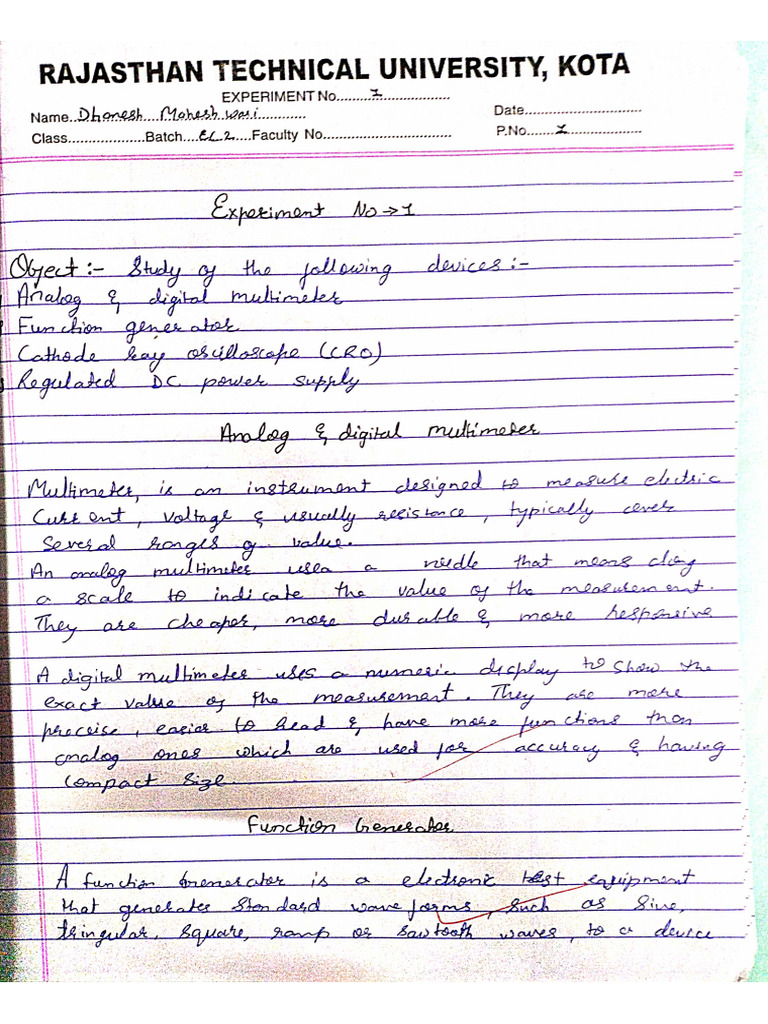 RAJASTHAN TECHNICAL UNIVERSITY, KOTA
EXPERIMENT No..........1....................
Name..Dhanesh....Maheshwari............. Date..............................
Class....................Batch....EC 2....Faculty No................................. P.No........1...................
Experiment No → 1
Object :- Study of the following devices :-
Analog & digital multimeter
Function generator
Cathode ray oscilloscope (CRO)
Regulated DC power supply
Analog & digital multimeter
Multimeter, is an instrument designed to measure electric
Current, voltage & usually resistance, typically over
several ranges of value.
An analog multimeter uses a needle that means along
a scale to indicate the value of the measurement.
They are cheaper, more durable & more responsive
A digital multimeter uses a numeric display to show the
exact value of the measurement. They are more
precise, easier to read & have more functions than
analog ones which are used for accuracy & having
compact size
Function Generator
A function Generator is a electronic test equipment
that generates standard wave forms, such as sine,
tringular, square, ramp or sawtooth waves, to a device